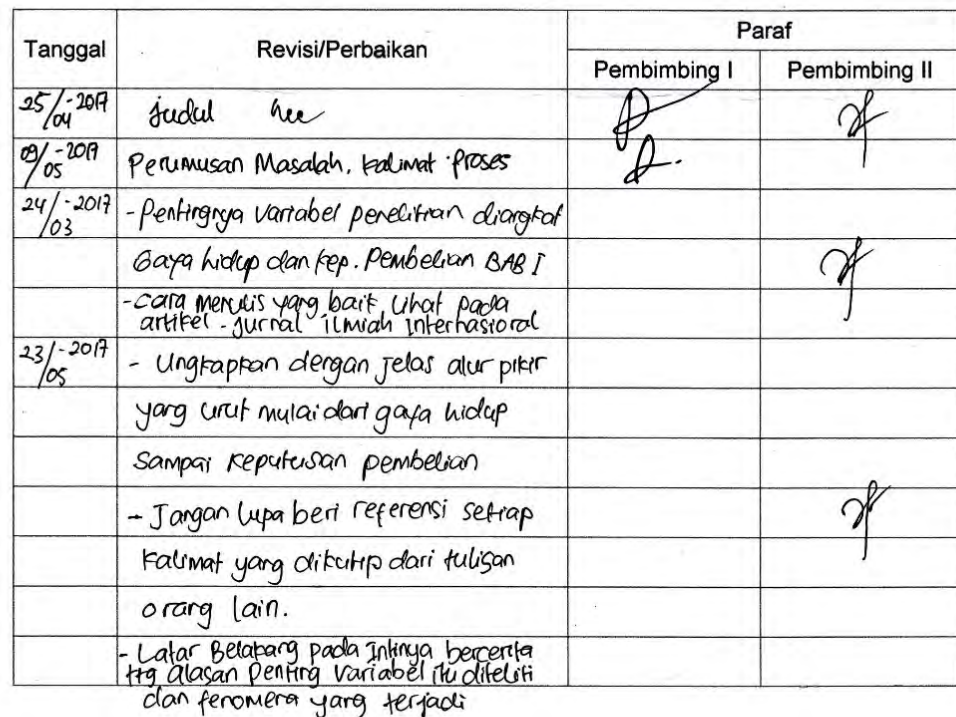 Tanggal Revisi/Perbaikan Paraf
Pembimbing I Pembimbing II
25/04-2017 Judul
09/05-2017 Perumusan Masalah, kalimat proses
24/03-2017 - Pentingnya variabel penelitian diangkat
Gaya hidup dan kep. Pembelian BAB I
- Cara menulis yang baik lihat pada
artikel - jurnal ilmiah internasional
23/05-2017 - Ungkapkan dengan jelas alur pikir
yang urut mulai dari gaya hidup
Sampai Keputusan pembelian
- Jangan lupa beri referensi setiap
Kalimat yang dikutip dari tulisan
orang lain.
- Latar Belakang pada Intinya bercerita
ttg alasan penting variabel itu diteliti
dan fenomena yang terjadi